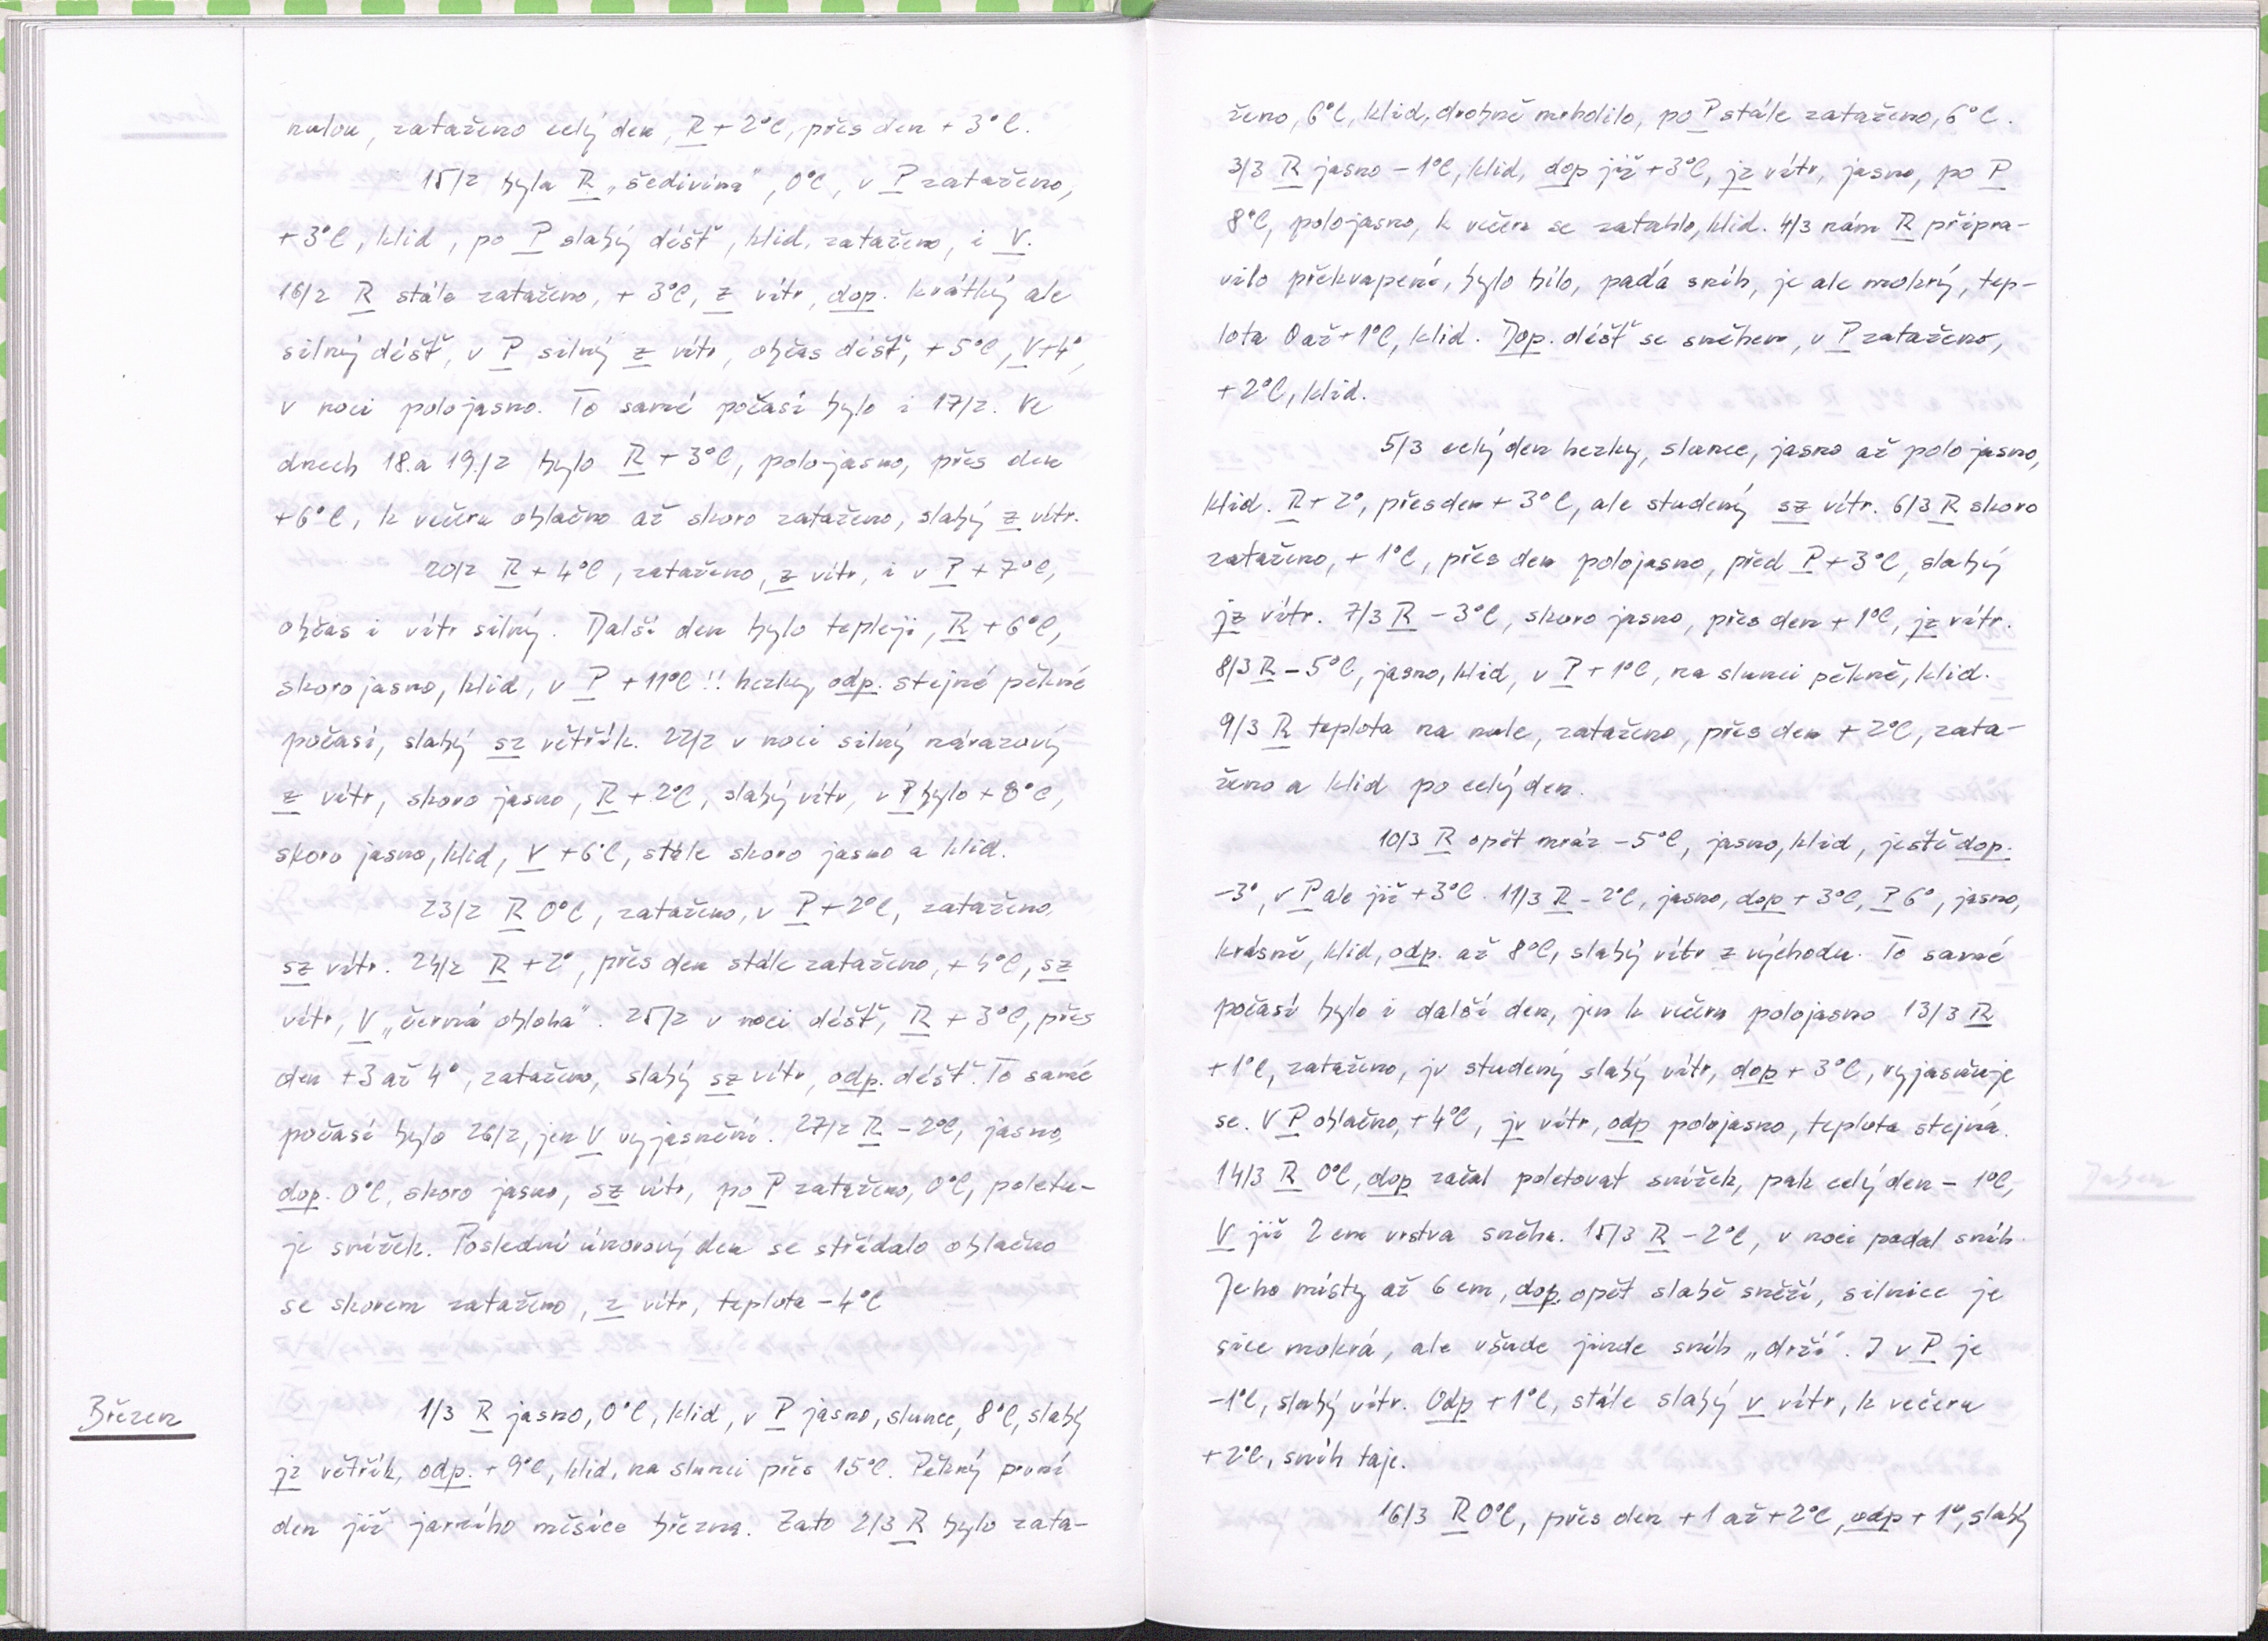 nulou, zataženo celý den, R + 2°C, přes den + 3°C.
15/2 byla R „šedivina", 0°C, v P zataženo,
+ 3°C, klid, po P slabý déšť, klid, zataženo, i V.
16/2 R stále zataženo, + 3°C, z vítr, dop. krátký ale
silný déšť, v P silný z vítr, občas déšť, + 5°C, V + 4°,
v noci polojasno. To samé počasí bylo i 17/2. Ve
dnech 18. a 19./2 bylo R + 3°C, polojasno, přes den
+ 6°C, k večeru oblačno až skoro zataženo, slabý z vítr.
20/2 R + 4°C, zataženo, z vítr, i v P + 7°C,
občas i vítr silný. Další den bylo tepleji, R + 6°C,
skoro jasno, klid, v P + 11°C!! hezky, odp. stejné pěkné
počasí, slabý sz větřík. 22/2 v noci silný nárazový
z vítr, skoro jasno, R + 2°C, slabý vítr, v P bylo + 8°C,
skoro jasno, klid, V + 6°C, stále skoro jasno a klid.
23/2 R 0°C, zataženo, v P + 2°C, zataženo,
sz vítr. 24/2 R + 2°, přes den stále zataženo, + 4°C, sz
vítr, V „černá obloha". 25/2 v noci déšť, R + 3°C, přes
den + 3 až 4°, zataženo, slabý sz vítr, odp. déšť. To samé
počasí bylo 26/2, jen V vyjasnění. 27/2 R - 2°C, jasno,
dop. 0°C, skoro jasno, sz vítr, po P zataženo, 0°C, poletu-
je snížek. Poslední únorový den se střídalo oblačno
se skorem zataženo, z vítr, teplota - 4°C
Březen
1/3 R jasno, 0°C, klid, v P jasno, slunce, 8°C, slabý
jz větřík, odp. + 9°C, klid, na slunci přes 15°C. Pěkný první
den již jarního měsíce března. Zato 2/3 R bylo zata-
ženo, 6°C, klid, drobně mrholilo, po P stále zataženo, 6°C.
3/3 R jasno - 1°C, klid, dop již + 3°C, jz vítr, jasno, po P
8°C, polojasno, k večeru se zatáhlo, klid. 4/3 nám R připra-
vilo překvapení, bylo bílo, padá sníh, je ale mokrý, tep-
lota 0 až + 1°C, klid. Dop. déšť se sněhem, v P zataženo,
+ 2°C, klid.
5/3 celý den hezky, slunce, jasno až polojasno,
klid. R + 2°, přes den + 3°C, ale studený sz vítr. 6/3 R skoro
zataženo, + 1°C, přes den polojasno, před P + 3°C, slabý
jz vítr. 7/3 R - 3°C, skoro jasno, přes den + 1°C, jz vítr.
8/3 R - 5°C, jasno, klid, v P + 1°C, na slunci pěkně, klid.
9/3 R teplota na nule, zataženo, přes den + 2°C, zata-
ženo a klid po celý den.
10/3 R opět mráz - 5°C, jasno, klid, ještě dop.
- 3°, v P ale již + 3°C. 11/3 R - 2°C, jasno, dop + 3°C, P 6°, jasno,
krásně, klid, odp. až 8°C, slabý vítr z východu. To samé
počasí bylo i další den, jen k večeru polojasno 13/3 R
+ 1°C, zataženo, jv studený slabý vítr, dop + 3°C, vyjasňuje
se. V P oblačno, + 4°C, jv vítr, odp polojasno, teplota stejná.
14/3 R 0°C, dop začal poletovat snížek, pak celý den - 1°C,
V již 2 cm vrstva sněhu. 15/3 R - 2°C, v noci padal sníh.
Jeho místy až 6 cm, dop. opět slabě sněží, silnice je
sice mokrá, ale všude jinde sníh „drží". I v P je
- 1°C, slabý vítr. Odp + 1°C, stále slabý v vítr, k večeru
+ 2°C, sníh taje.
16/3 R 0°C, přes den + 1 až + 2°C, odp + 1°, slabý